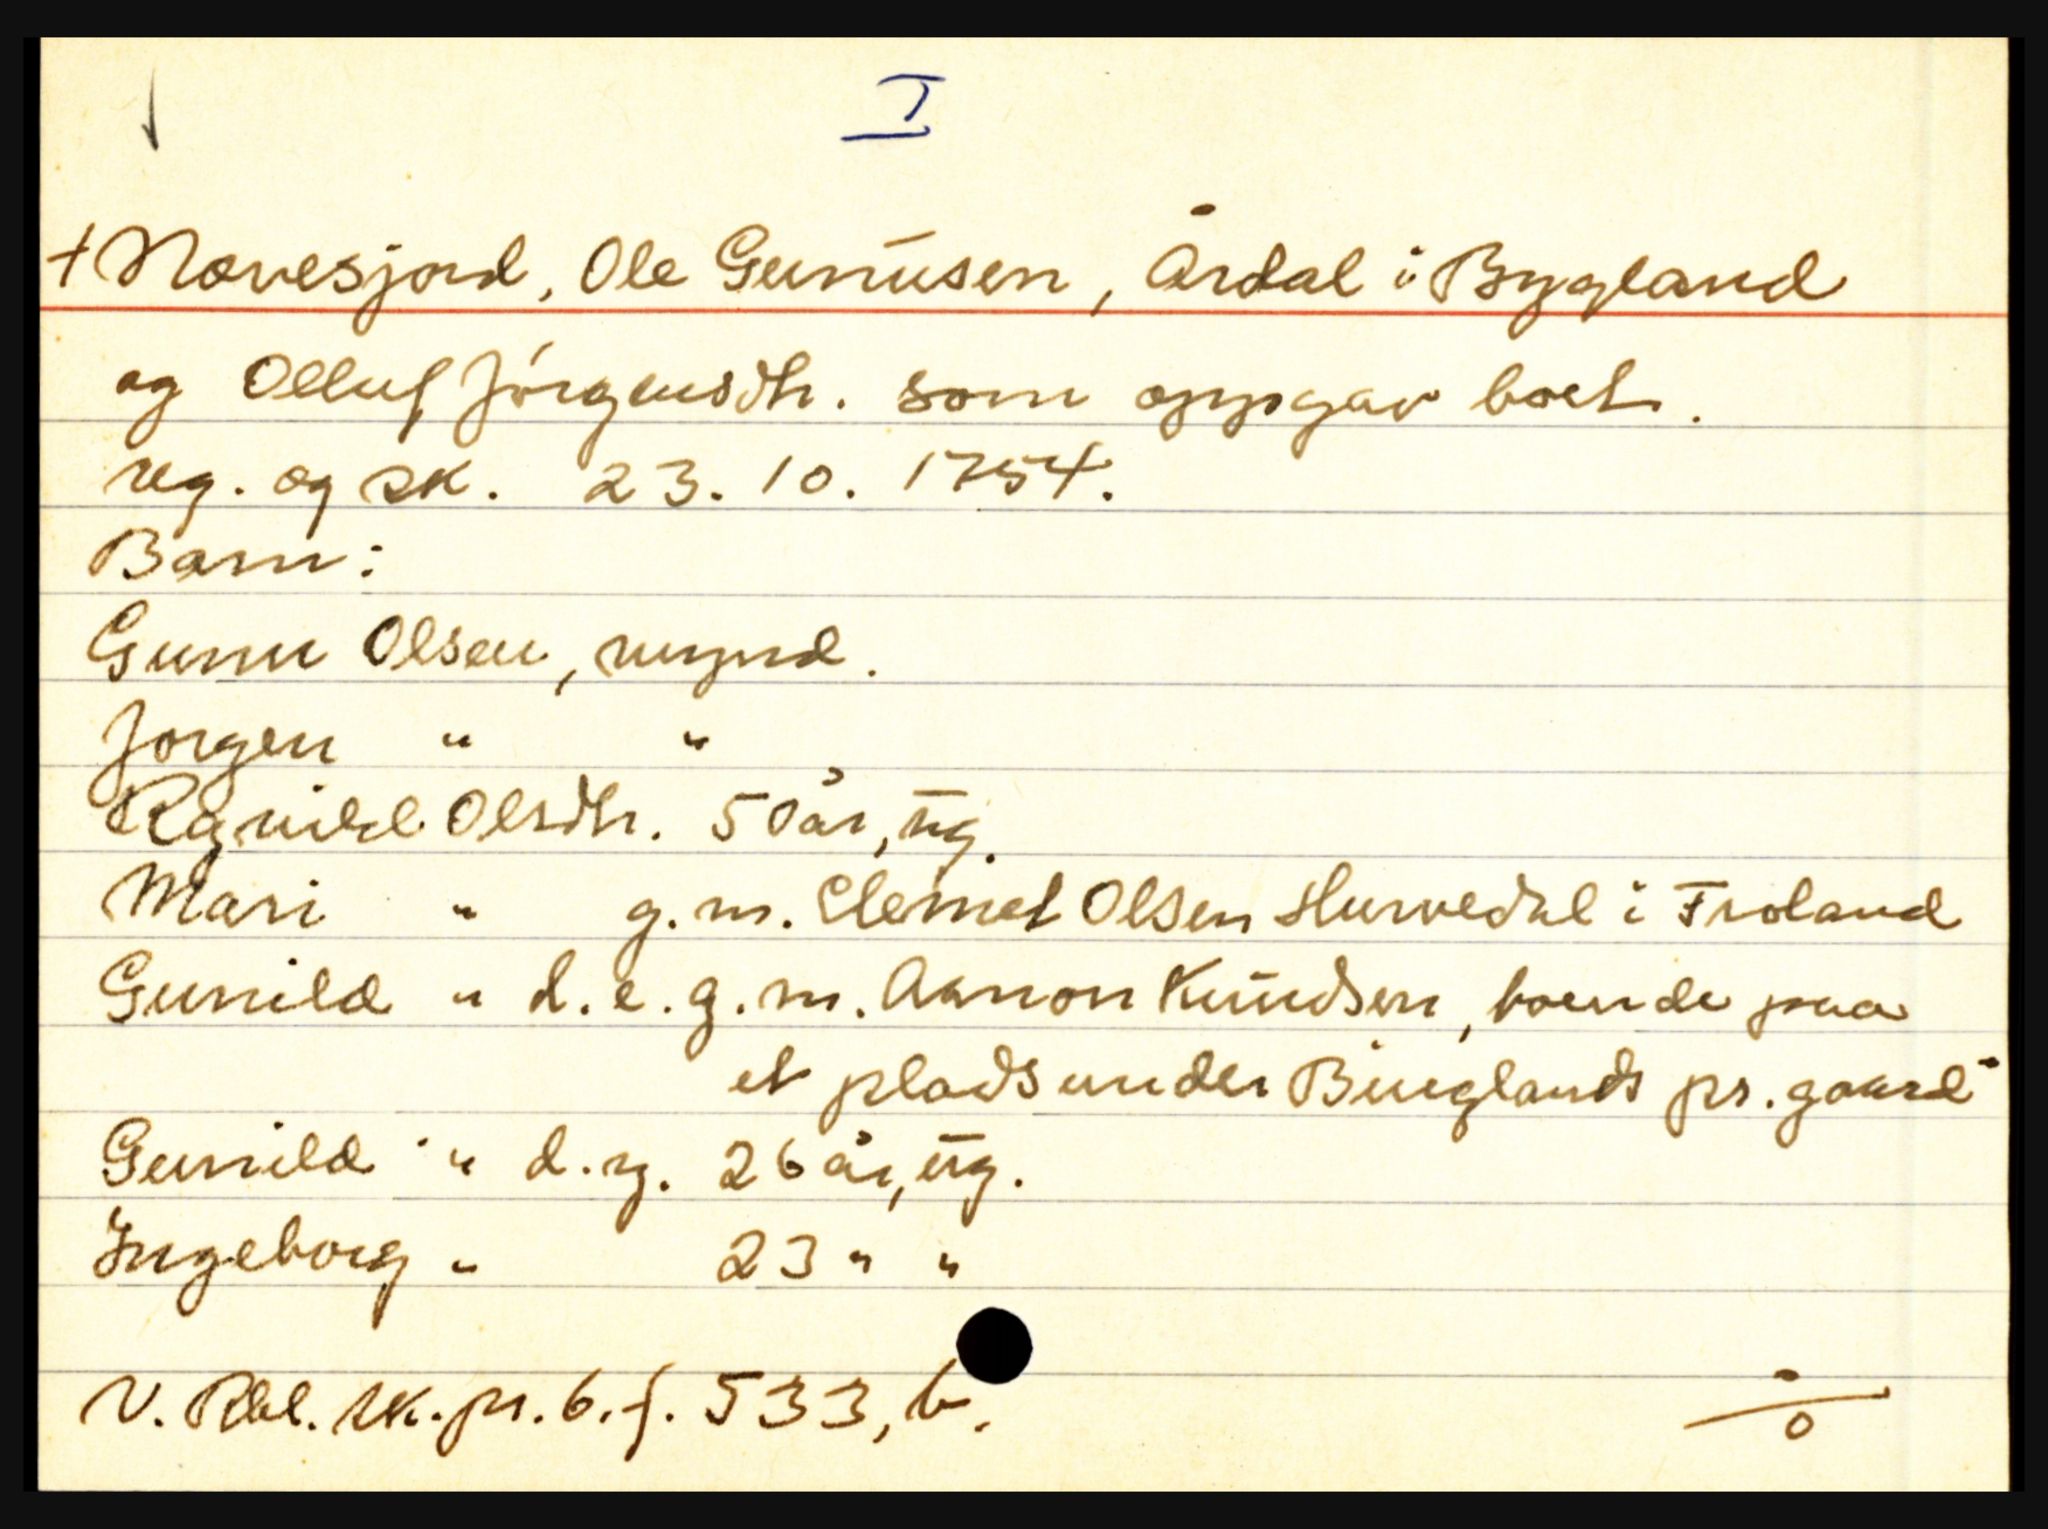 I
+ Novesjord, Ole Gunūsen, Årdal i Bygland
og Olluf Jórgensdtr. som oppgav boet.
reg. og sk. 23. 10. 1754.
Barn:
Gunu Olsen, mynd.
Jorgen " "
Rgnild Olsdtr. 50 år, ūg.
Mari " g. m. Clemet Olsen Hurvedal i Froland
Gunild " d. e. g. m. Aanon Knūdsen, boende paa
et plads under Binglands pr. gaard"
Gunild " d. y. 26 år, ūg.
Ingeborg " 23 " "
V. Rbl. sk. pr. 6. f. 533, b.